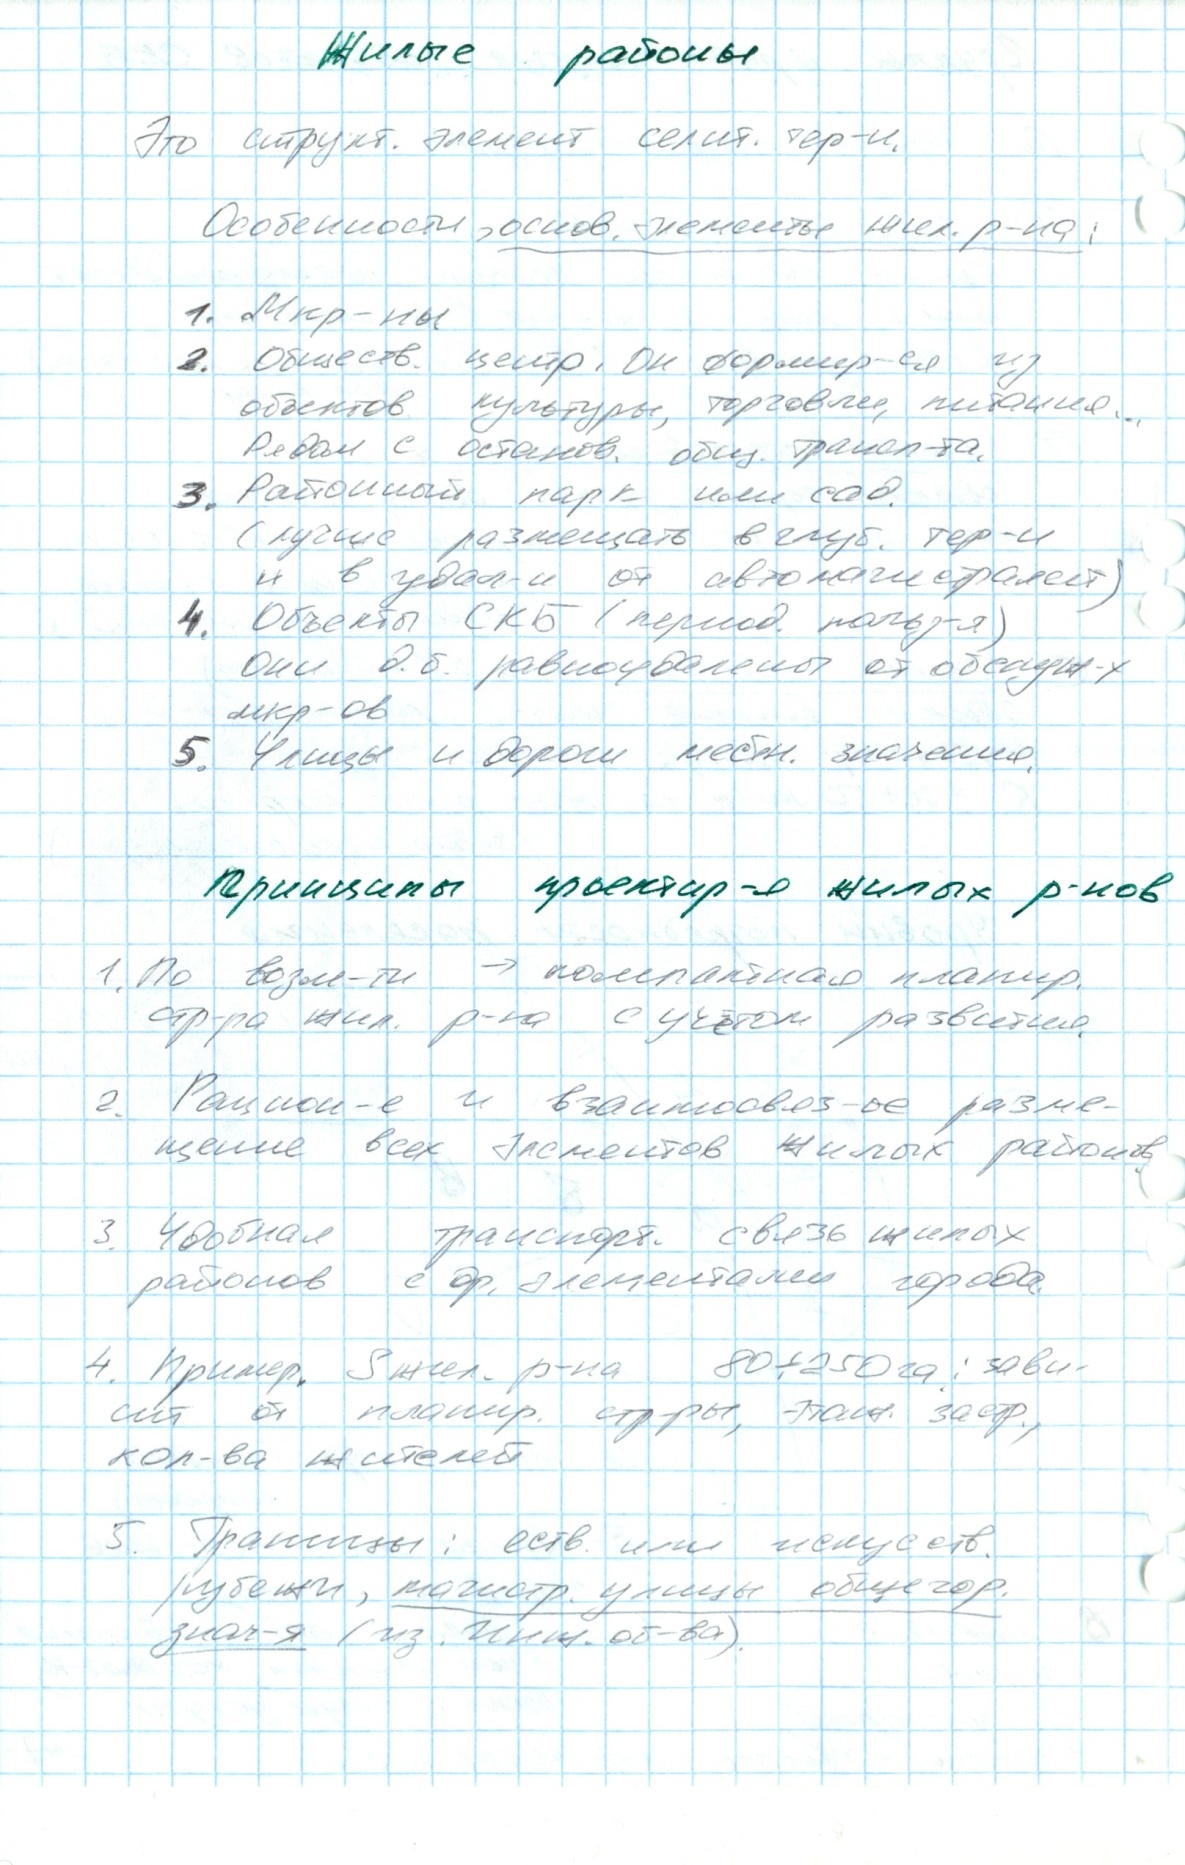 Жилые районы
Это структ. элемент селит. тер-и.
Особенности, основ. элементы жил. р-на:
1. Мкр-ны
2. Обществ. центр. Он формир-ся из
объектов культуры, торговли, питания...
Рядом с останов. общ. трансп-та.
3. Районный парк или сад.
(лучше размещать в глуб. тер-и
и в удал-и от автомагистралей)
4. Объекты СКБ (период. польз-я)
Они д.б. равноудалены от обслуж-х
мкр-ов
5. Улицы и дороги местн. значения.
Принципы проектир-я жилых р-нов
1. По возм-ти → компактная планир.
стр-ра жил. р-на с учётом развития.
2. Рацион-е и взаимосвяз-ое разме-
щение всех элементов жилых районов
3. Удобная транспорт. связь жилых
районов с др. элементами города.
4. Пример. S жил. р-на 80÷250 га: зави-
сит от планир. стр-ры, этаж. застр.,
кол-ва жителей
5. Границы: еств. или искуств.
рубежи, магистр. улицы общегор.
знач-я (из. Инж. об-ва).